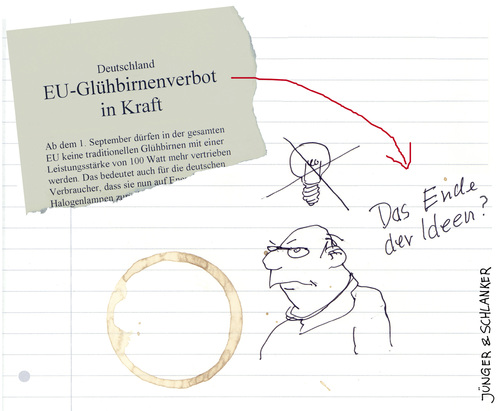 Deutschland
EU-Glühbirnenverbot
in Kraft
Ab dem 1. September dürfen in der gesamten
EU keine traditionellen Glühbirnen mit einer
Leistungsstärke von 100 Watt mehr vertrieben
werden. Das bedeutet auch für die deutschen
Verbraucher, dass sie nun auf
Halogenlampen
Das Ende
der Ideen?
JÜNGER & SCHLANKER